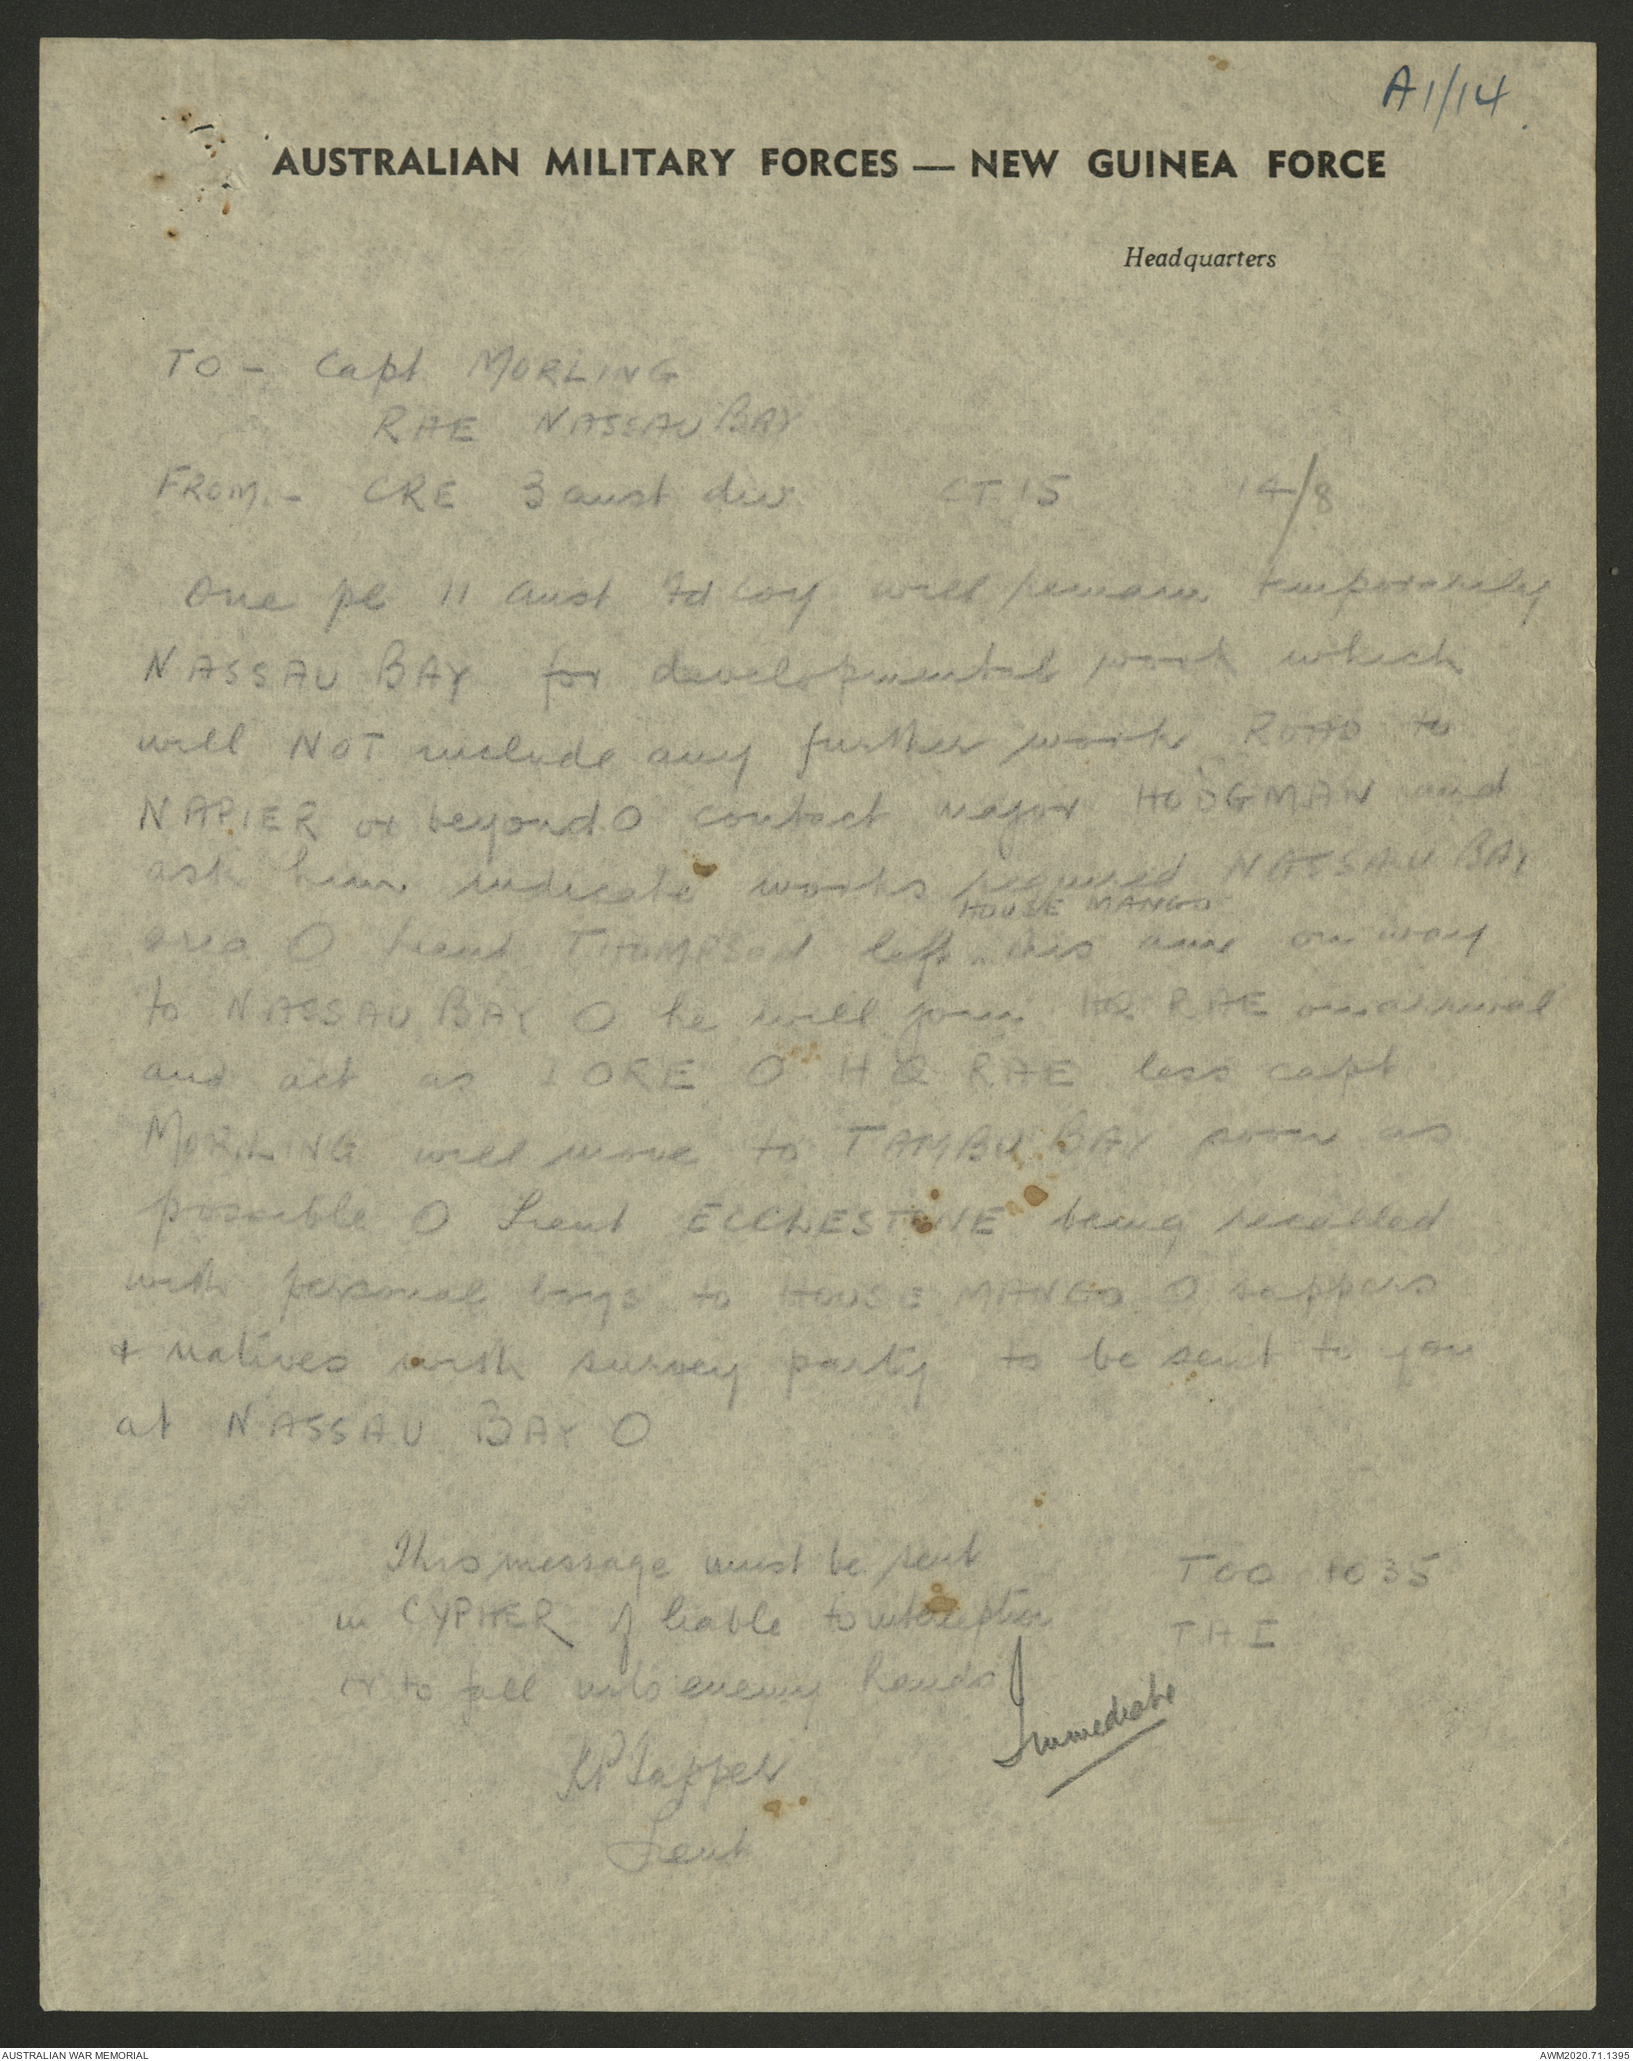 A1/14.
AUSTRALIAN MILITARY FORCES — NEW GUINEA FORCE
Headquarters
TO - Capt MORLING
RAE NASSAU BAY
FROM:- CRE 3 aust div CT 15 14/8
One pl 11 aust Fd Coy will remain temporarily
NASSAU BAY for developmental work which
will NOT include any further work ROAD to
NAPIER or beyond O contact major HODGMAN and
ask him indicate works required NASSAU BAY
HOUSE MANGO
area O Lieut THOMPSON left this am on way
to NASSAU BAY O he will join HQ RAE on arrival
and act as IORE O HQ RAE less capt
MORLING will move to TAMBU BAY soon as
possible O Lieut ECCLESTONE being recalled
with personal boys to HOUSE MANGO O sappers
+ natives with survey party to be sent to you
at NASSAU BAY O
This message must be sent TOO 1035
in CYPHER if liable to interception THI
or to fall into enemy hands
Immediate
Lieut
AUSTRALIAN WAR MEMORIAL AWM2020.71.1395